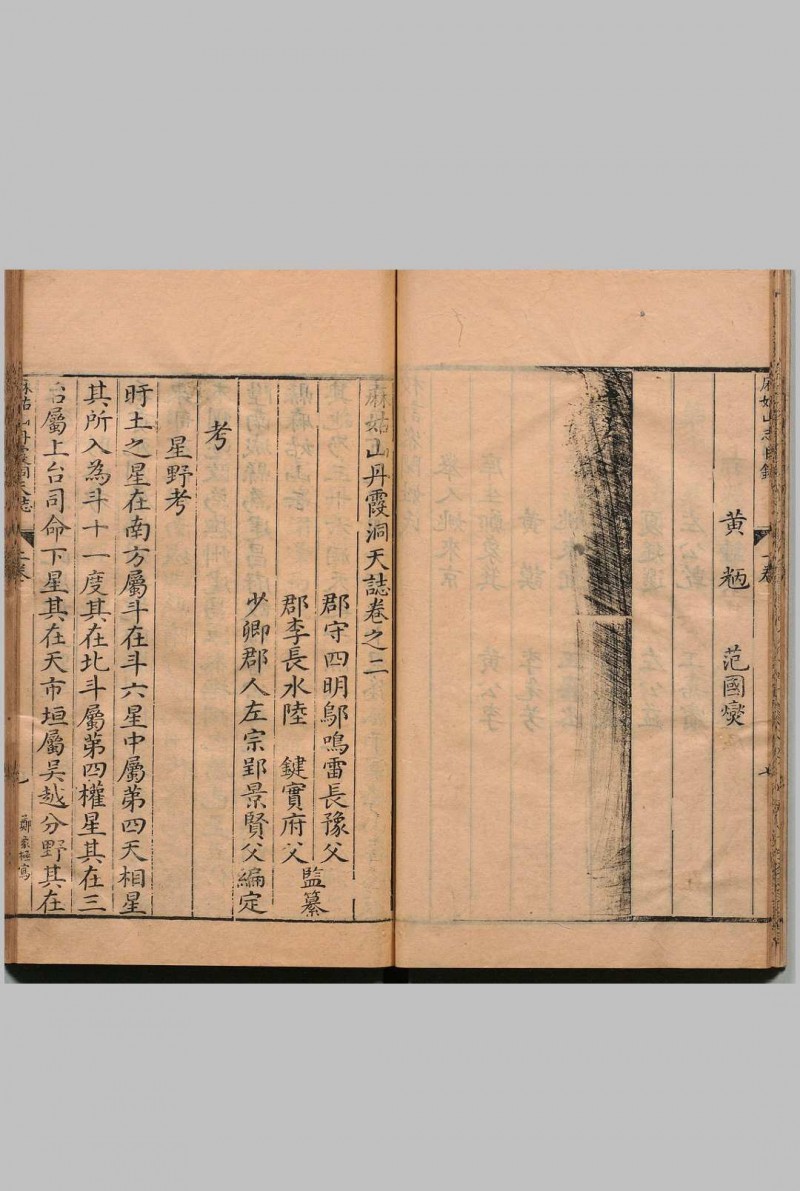 麻姑山志目錄
黃　㭒　范國燮
麻姑山丹霞洞天誌卷之二
郡守四明鄔鳴雷長豫父
郡李長水陸　鍵實府父
監纂
少卿郡人左宗郢景賢父編定
考
星野考
旴土之星在南方屬斗在斗六星中屬第四天相星
其所入為斗十一度其在北斗屬第四權星其在三
台屬上台司命下星其在天市垣屬吳越分野其在
麻姑山丹霞洞天誌
二卷